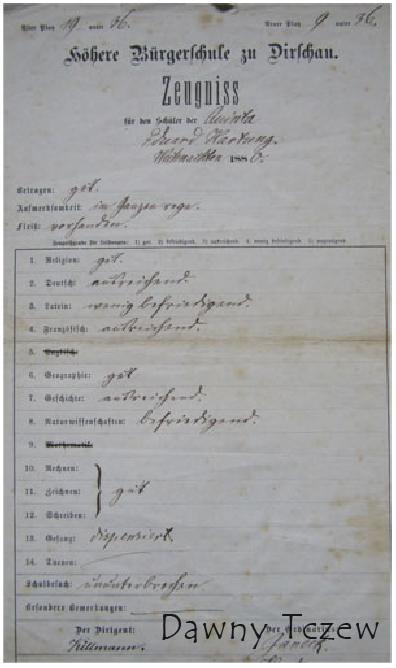 Alter Platz 19 unter 36.    Neuer Platz 9 unter 36.
Höhere Bürgerschule zu Dirschau.
Zeugniss
für den Schüler der Quinta
Eduard Hartung.
Weihnachten 1886.
Betragen: gut.
Aufmerksamkeit: im Ganzen rege.
Fleiß: vorhanden.
1) gut. 2) befriedigend. 3) ausreichend. 4) wenig befriedigend. 5) ungenügend.
1. Religion: gut.
2. Deutsch: ausreichend.
3. Latein: wenig befriedigend.
4. Französisch: ausreichend.
5. Englisch:
6. Geographie: gut
7. Geschichte: ausreichend.
8. Naturwissenschaften: befriedigend.
9. Mathematik:
10. Rechnen:
11. Zeichnen: gut
12. Schreiben:
13. Gesang: dispensiert.
14. Turnen:
Schulbesuch: ununterbrochen
Besondere Bemerkungen:
Der Dirigent: Der Ordinarius:
Killmann.
Dawny Tczew